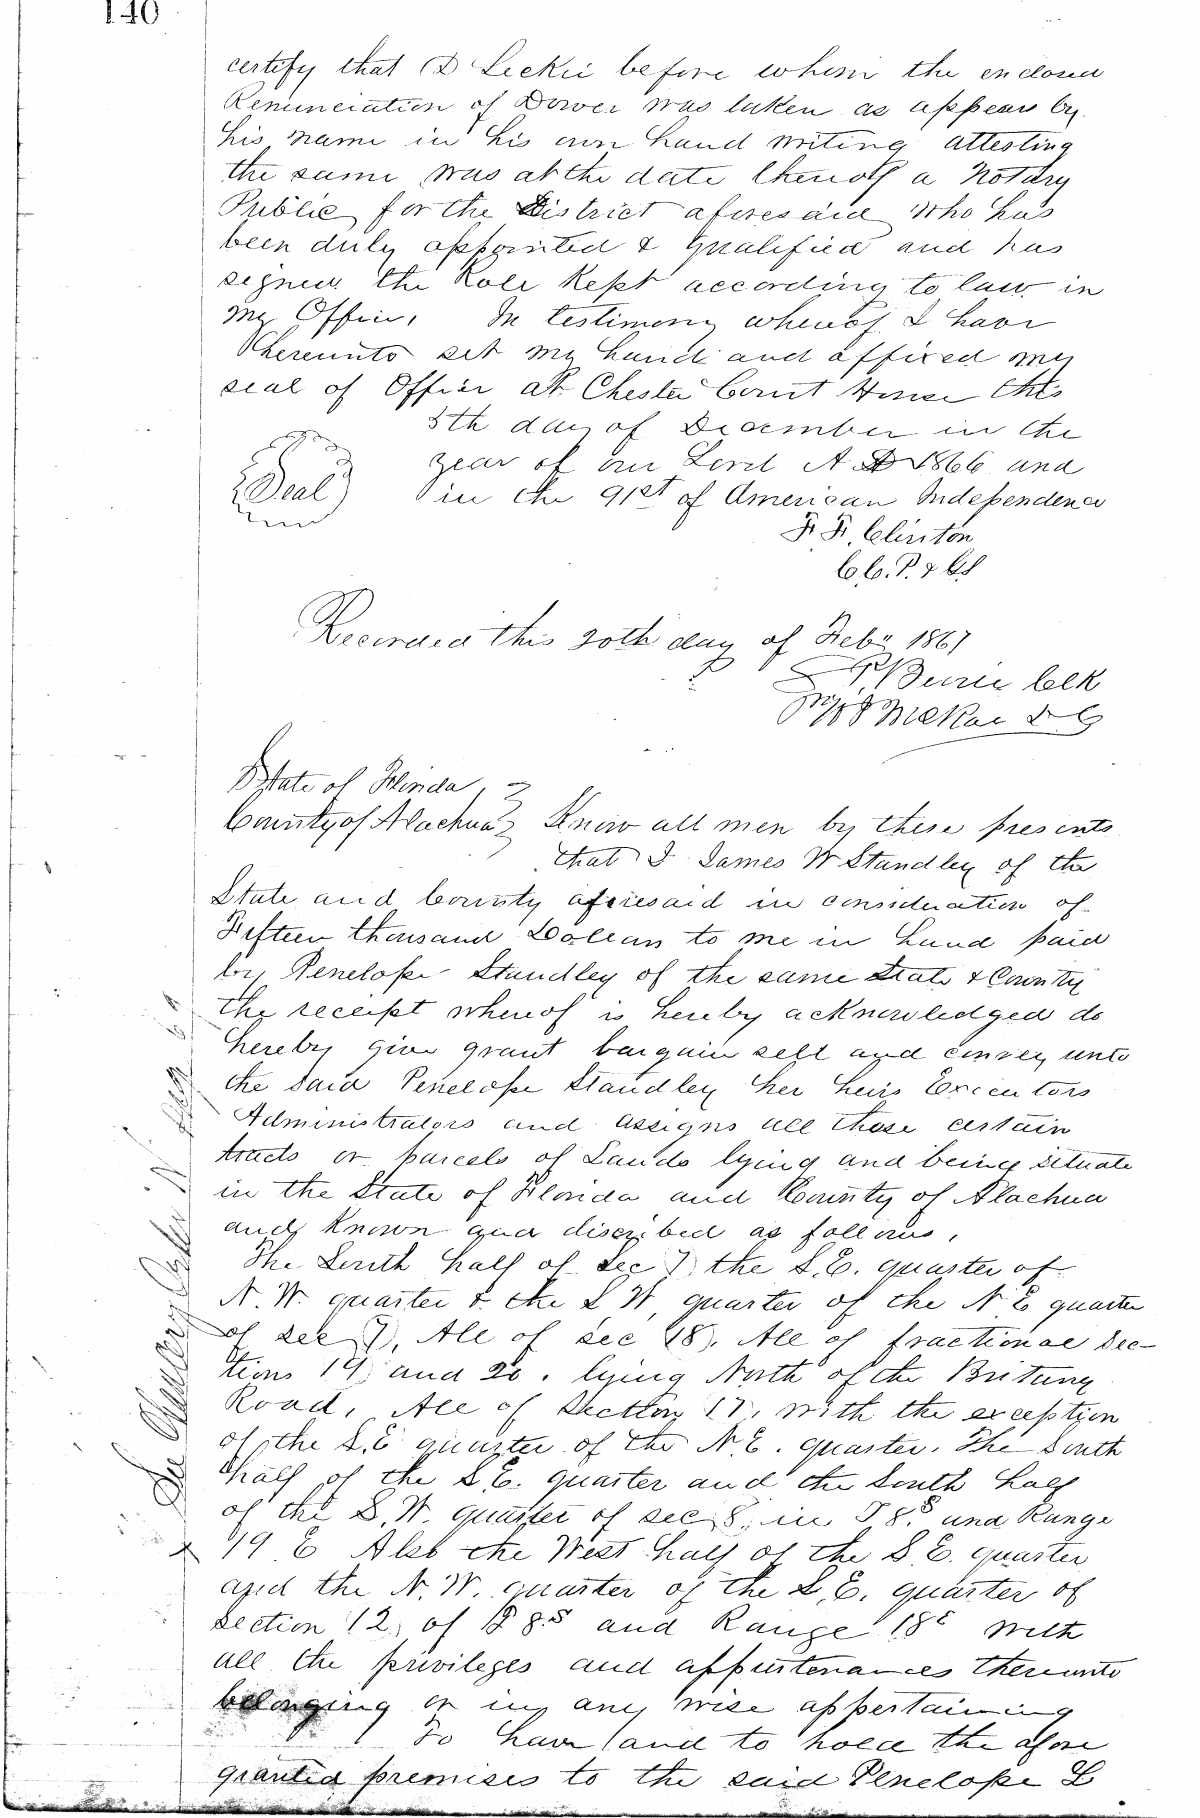 140
certify that D Leckie before whom the enclosed
Renunciation of Dower was taken as appears by
his name in his own hand writing attesting
the same was at the date thereof a Notary
Public for the District aforesaid who has
been duly appointed & qualified and has
signed the Role Kept according to law in
my Office. In testimony whereof I have
hereunto set my hand and affixed my
seal of Office at Chester Court House this
5th day of December in the
year of our Lord A D 1866 and
Seal
in the 91st of American Independence
F. F. Clinton
C C. P. &
Recorded this 20th day of Feby 1867
Clk
McKae D C
State of Florida
County of Alachua Know all men by these presents
that I James W Standley of the
State and County aforesaid in consideration of
Fifteen thousand Dollars to me in hand paid
by Penelope Standley of the same State & County
the receipt whereof is hereby acknowledged do
hereby give grant bargain sell and convey unto
the said Penelope Standley her heirs Executors
Administrators and assigns all those certain
tracts or parcels of Lands lying and being situate
in the State of Florida and County of Alachua
and known and discribed as follows,
The South half of Sec 7) the S.E. quarter of
N. W. quarter & the S W quarter of the N E quarter
of sec 7), All of sec 18). All of fractional Sec-
tions 19) and 20. lying North of the
Road, All of Section 17, with the exception
of the S.E quarter of the N.E. quarter. The South
half of the S E. quarter and the South half
of the S. W. quarter of sec 8, in T 8.S and Range
19 E Also the West half of the S E. quarter
and the N. W. quarter of the S, E. quarter of
Section 12) of T 8.S and Range 18E with
all the privileges and appurtenances thereunto
belonging or in any wise appertaining
To have and to hold the afore
granted premises to the said Penelope L